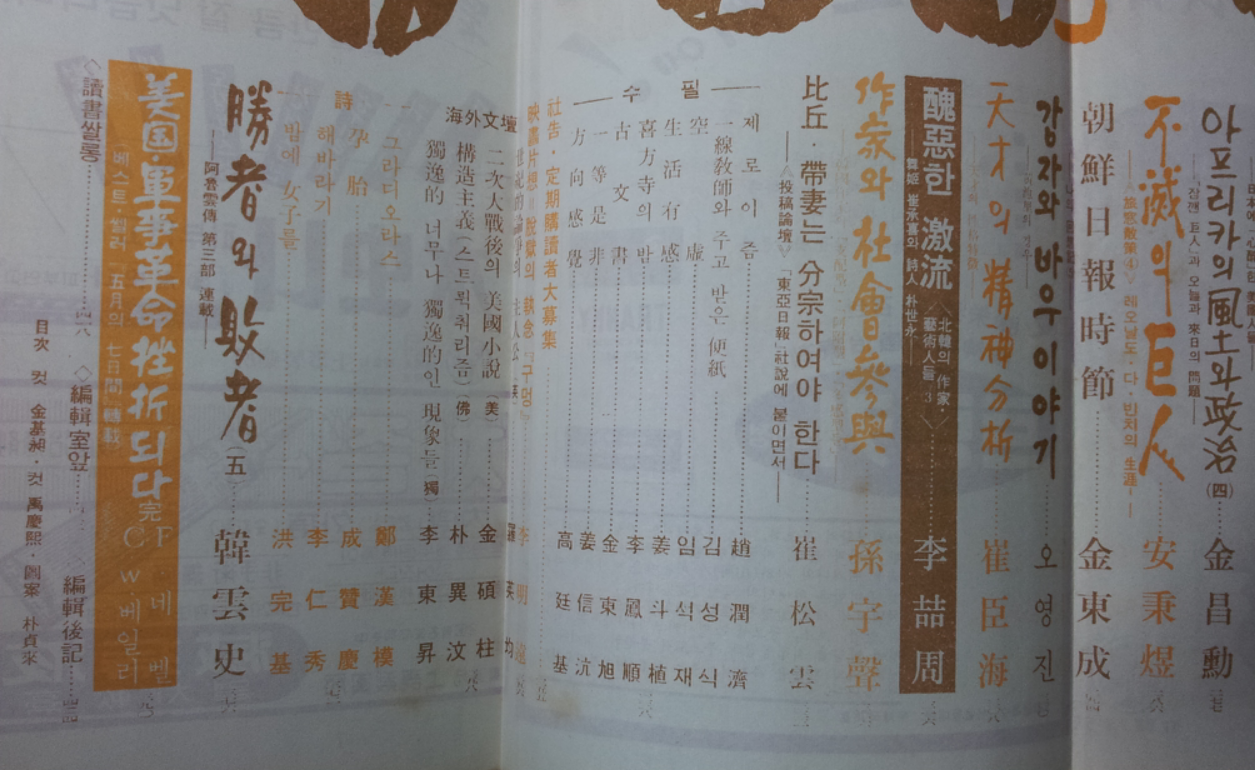 아프리카의 風土와 政治 (四)
金昌勳
不滅의 巨人
旅窓散策④
레오날도・다・빈치의 生涯
安秉煜
朝鮮日報時節
金東成
감자와 바우이야기
오영진
天才의 精神分析
崔臣海
醜惡한 激流
〈北韓의 作家・藝術人들 3〉
舞姬 崔承喜와 詩人 朴世永
李喆周
作家와 社會參與
孫宇聲
比丘・帶妻는 分宗하여야 한다
〈投稿論壇〉 「東亞日報」社說에 붙이면서
崔松雲
수필
제로이즘
趙潤濟
一線敎師와 주고 받은 便紙
김성식
空虛
임석재
生活有感
姜斗植
喜方寺의 밤
李鳳順
古文書
金東旭
一等是非
姜信沆
方向感覺
高廷基
社告・定期購讀者大募集
映畵片想=脫獄의 執念 『구멍』
李明遠
海外文壇
二次大戰後의 美國小說 (美)
金碩柱
構造主義(스트럭취리즘) (佛)
朴異汶
獨逸的 너무나 獨逸的인 現象들 (獨)
李東昇
詩
그라디오라스
鄭漢模
孕胎
成贊慶
해바라기
李仁秀
밤에 女子를
洪完基
勝者와 敗者 (五)
阿雲雲傳 第三部 連載
韓雲史
美国・軍事革命挫折되다 完
(베스트・쎌러 「五月의 七日間」轉載)
F・네벨
C・W・베일리
◇讀書쌀롱
◇編輯室앞
編輯後記
目次 컷 金基昶・컷 禹慶熙・圖案 朴貞來